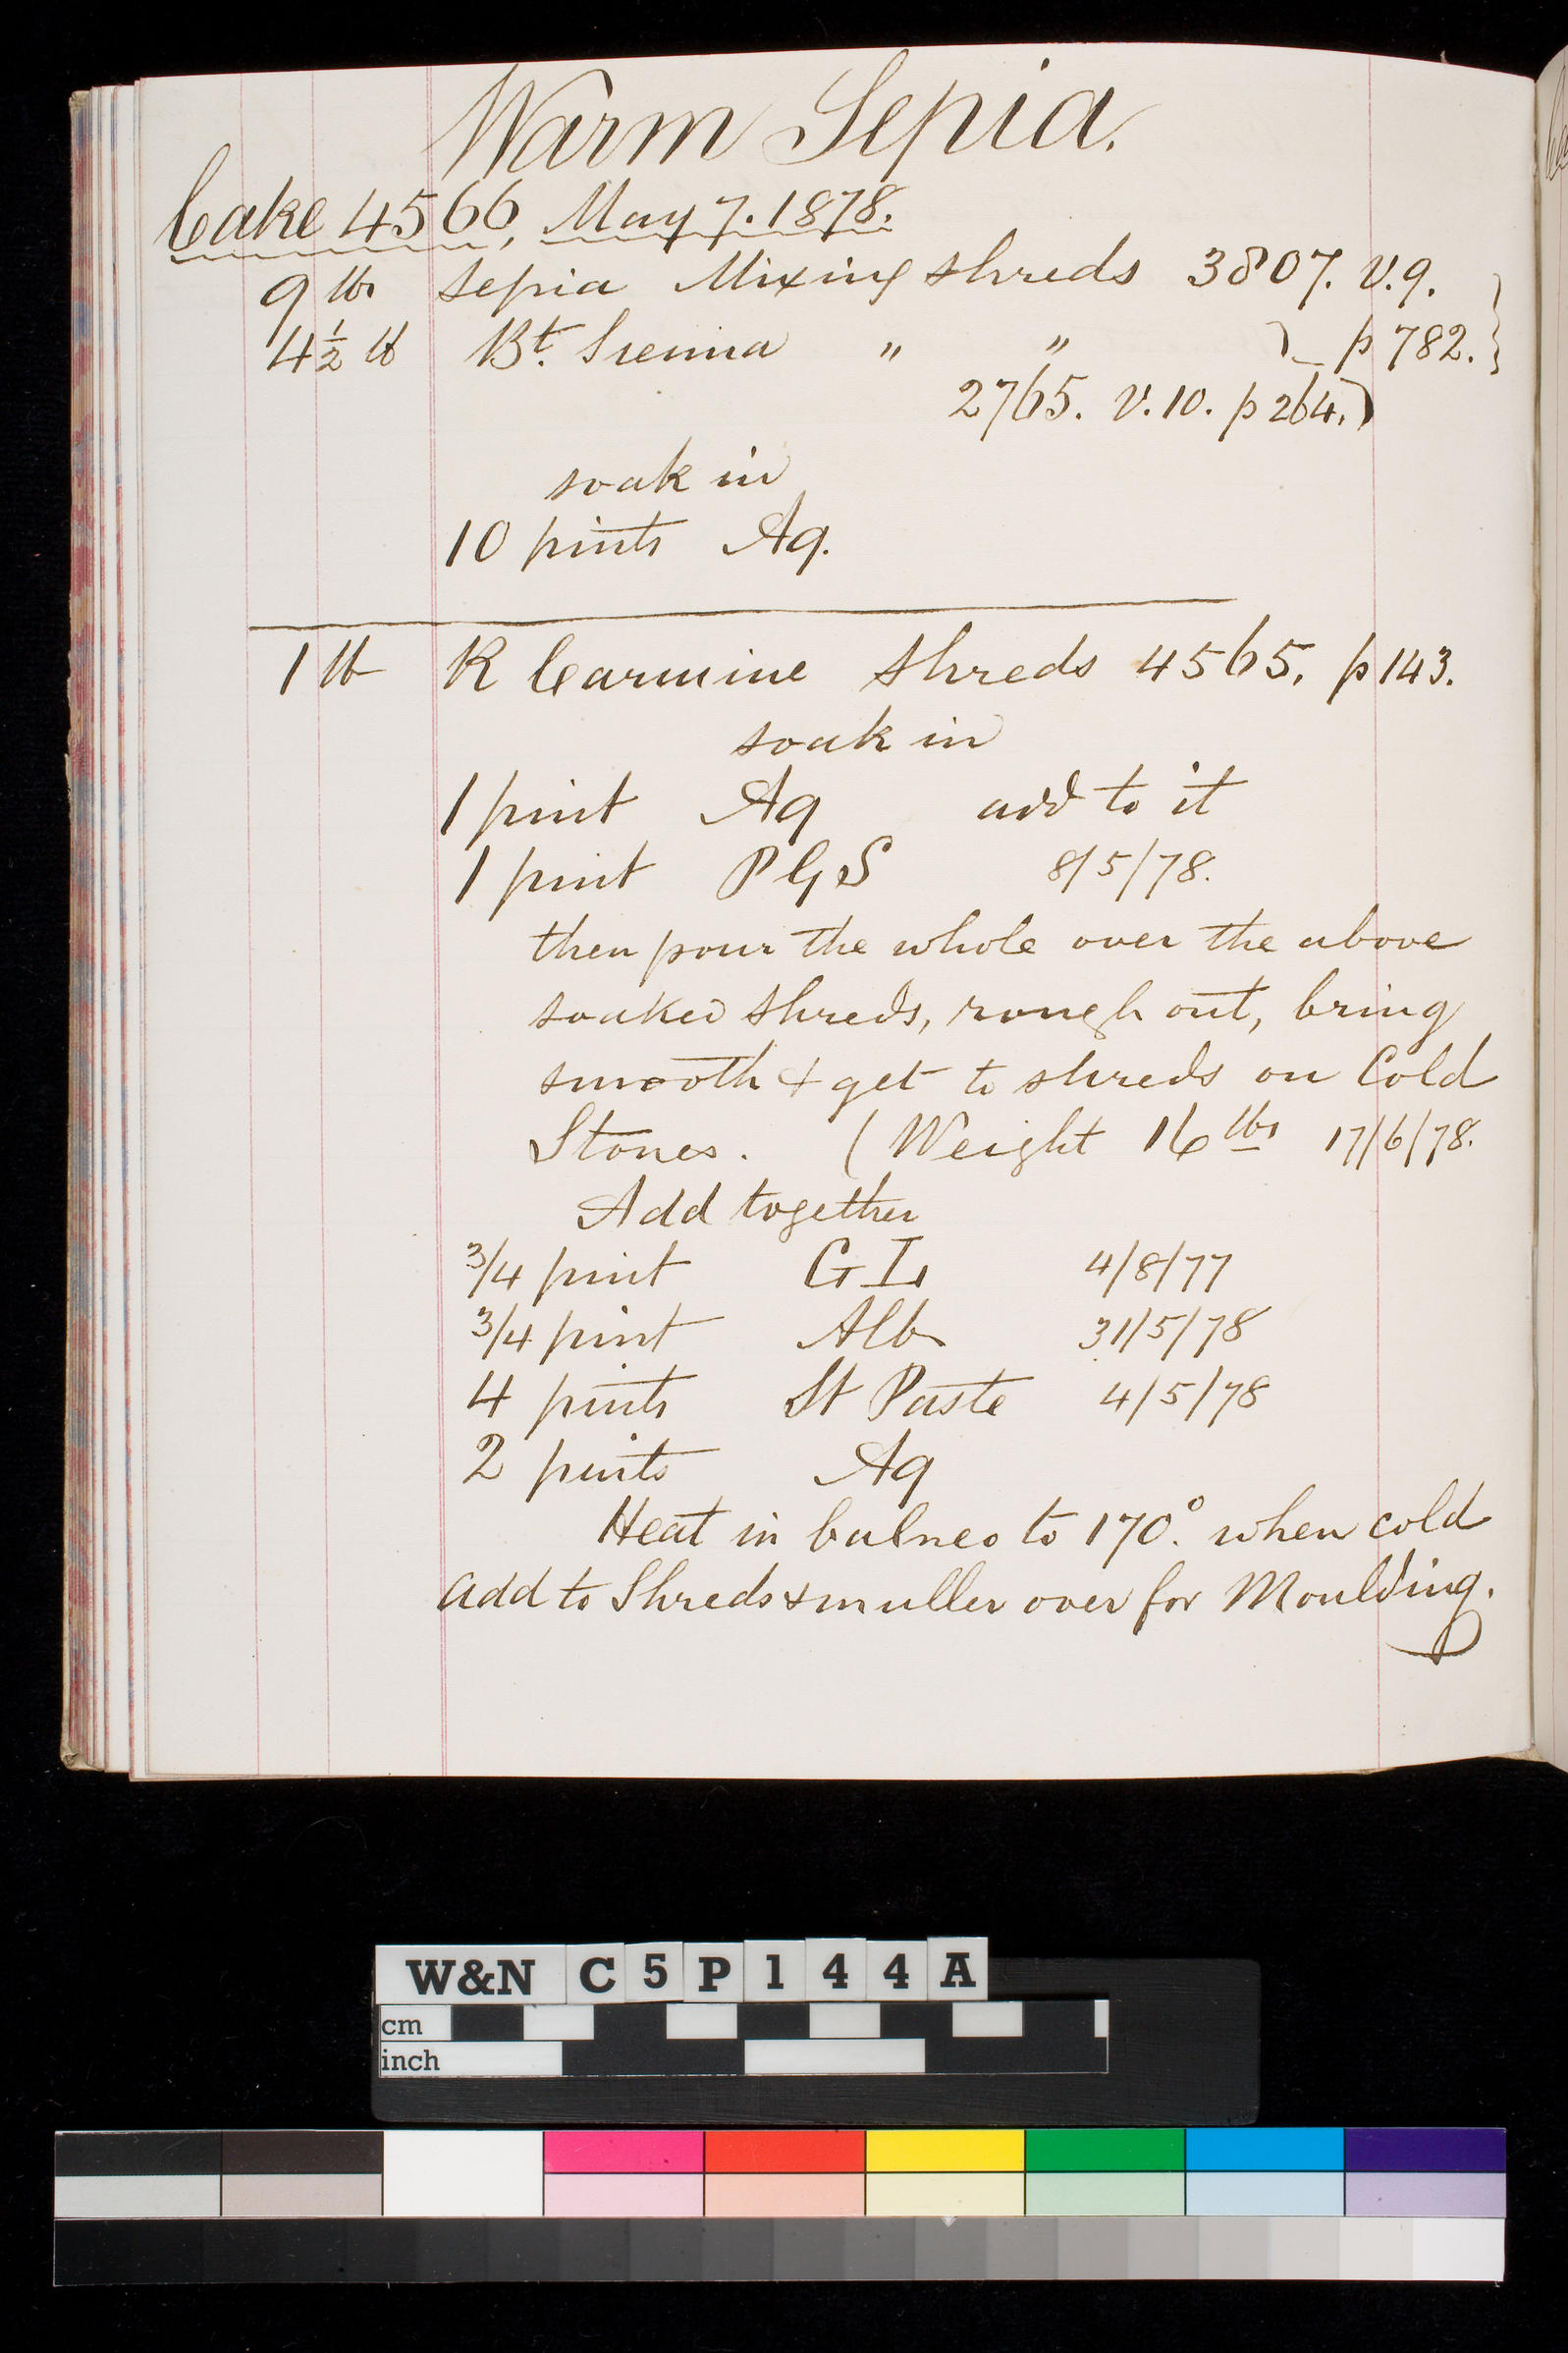 Warm Sepia.
Cake 4566, May 7. 1878.
9 lbs Sepia Mixing shreds 3807. V.9.
4½ lb Bt. Sienna " " p 782.
2765. V.10. p 264.
soak in
10 pints Aq.
1 lb R Carmine shreds 4565. p 143.
soak in
1 pint Aq add to it
1 pint PGS 8/5/78.
then pour the whole over the above
soaked shreds, rough out, bring
smooth & get to shreds on Cold
Stones. ( Weight 16 lbs 17/6/78.
Add together
3/4 pint G L 4/8/77
3/4 pint Alb 31/5/78
4 pints St Paste 4/5/78
2 pints Aq
Heat in balneo to 170°. when cold
add to Shreds & muller over for Moulding.
W&N C5P144A
cm
inch